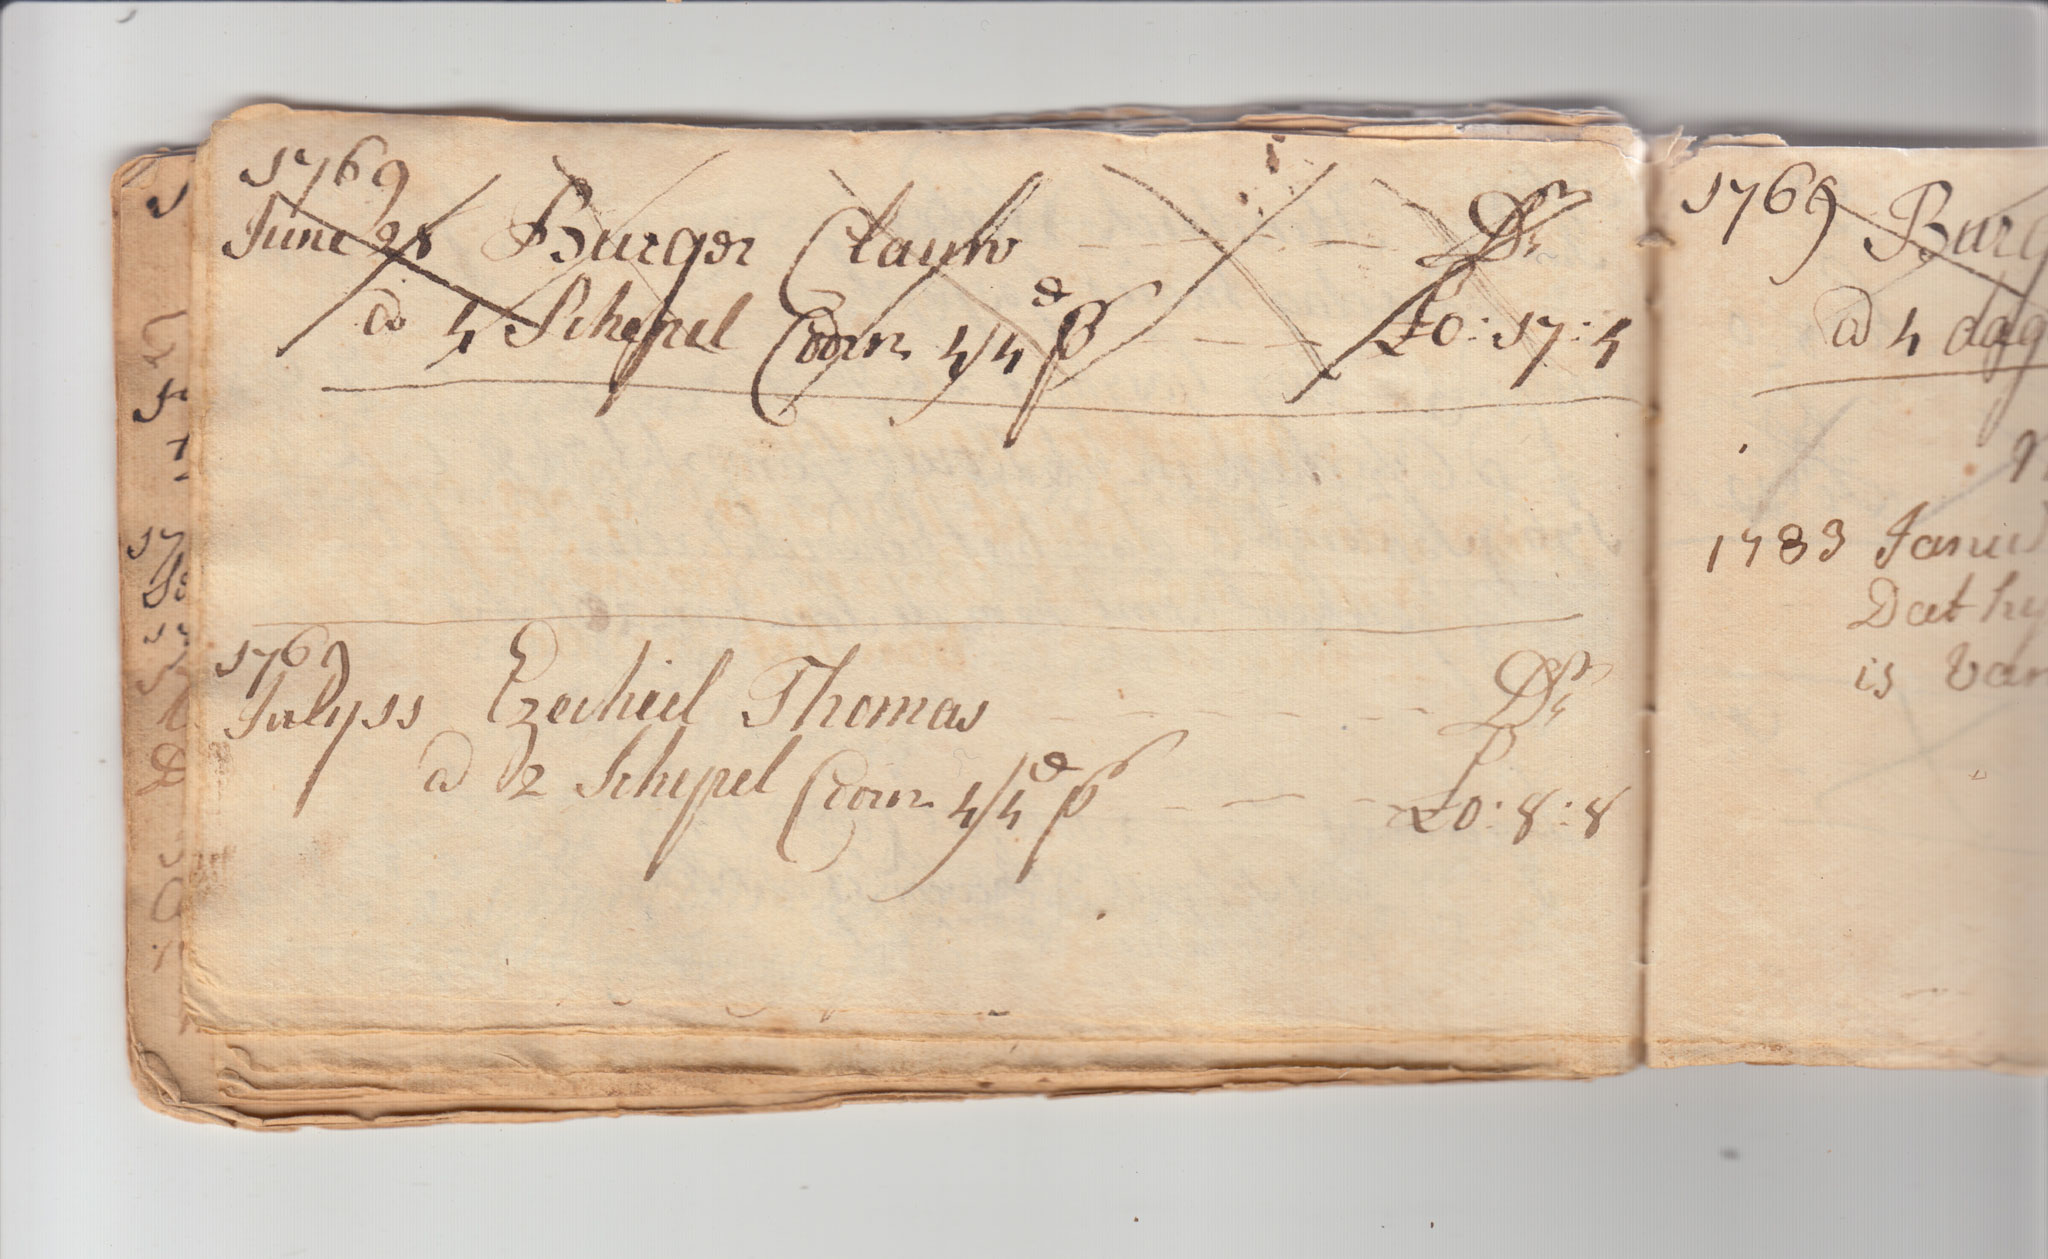 1769
June 28 Burger Clauw - - - - Dr
a 4 Schepel Coorn 4/4d P - - - £0:17:4
1769
July 11 Ezechiel Thomas - - - - - - Dr
a 2 Schepel Coorn 4/4d P - - - £0:8:8
1769 Burg
a 4 dag
1783 Janu
Dat hy
is van